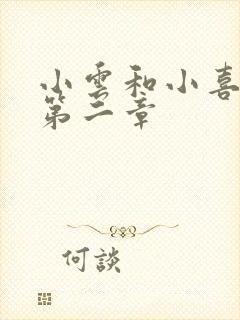 小雲和小喜
第二章
何談